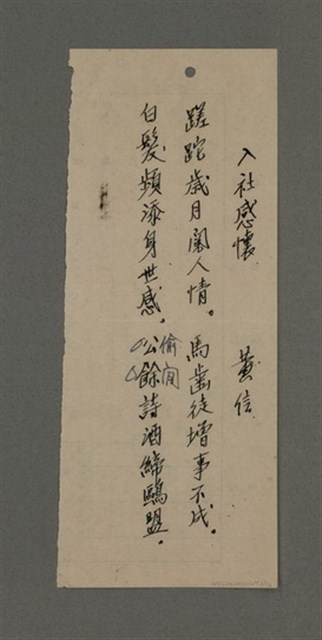 入社感懷　黃信
蹉跎歲月閱人情。馬齒徒增事不成。
白髮頻添身世感。公餘詩酒締鷗盟。
偷閒